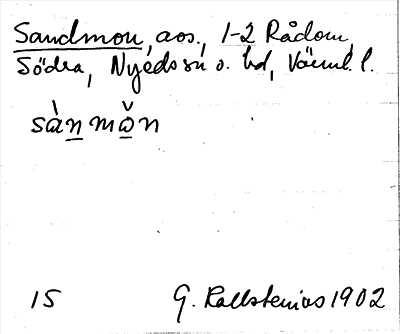 Sandmon, aos., 1-2 Rådom,
Södra, Nyeds sn o. hd, Värml. l.
sànmǒn
15 G. Kallstenius 1902